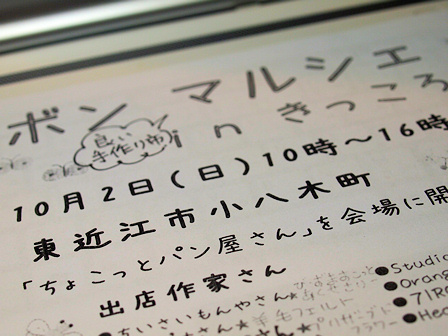 ボン マルシェ
良い
手作り市
in きっころ
10月2日(日)10時〜16時
東近江市小八木町
「ちょこっとパン屋さん」を会場に開
出店作家さん
●Studio
●Orang
ちいさいもんやさん★